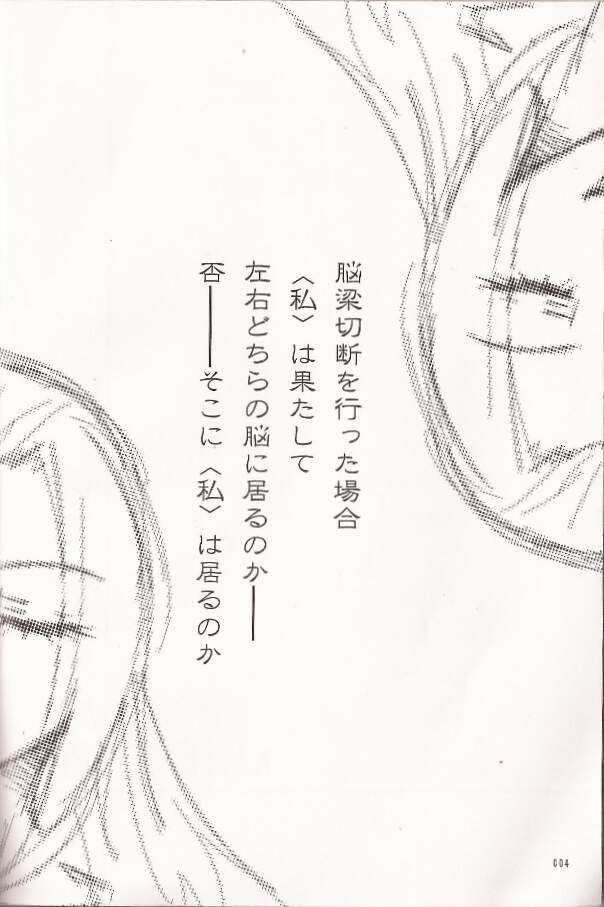 脳梁切断を行った場合
〈私〉は果たして
左右どちらの脳に居るのか――
否――そこに〈私〉は居るのか
004